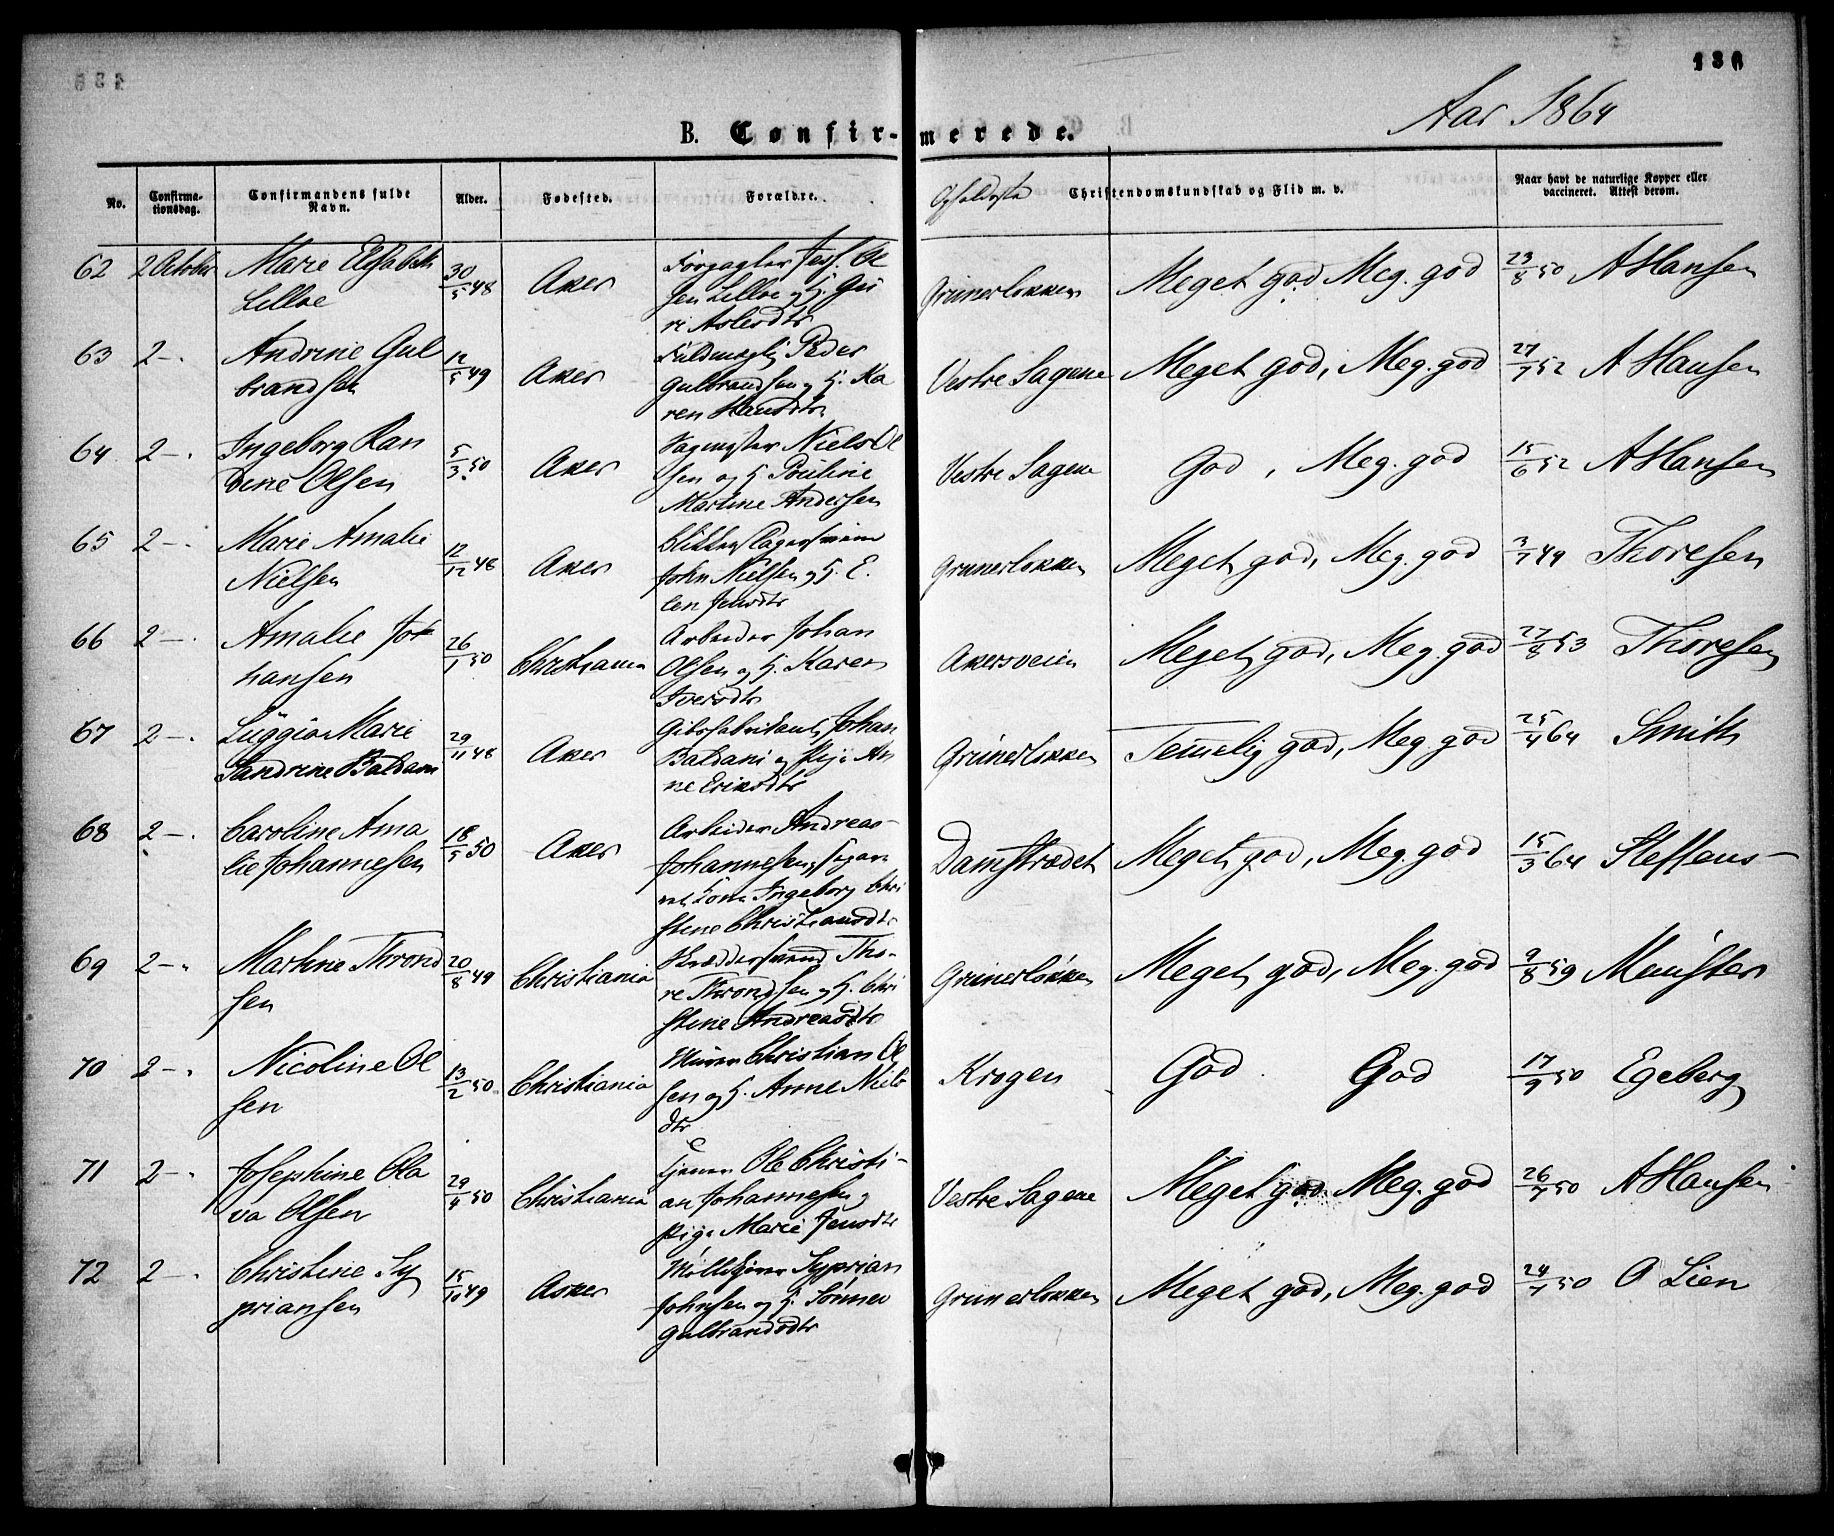 136
Aar 1864
B. Confirmerede.
No.
Confirma-
tionsdag.
Confirmandens fulde
Navn.
Alder.
Fødested.
Forældre.
Opholdssted
Christendomskundskab og Flid m. v.
Naar havt de naturlige Kopper eller
vaccineret. Attest derom.
62 2 October Marie Elisabeth 30/5 48 Aker Ol Grünerløkken Meget god Meg. god 23/8 50 A Hansen
Lilloe
sen Lilloe og H. Gu
ri Aslesdtr
63 2 —. Andrine Gul 12/5 49 Aker Fuldmægtig Peder Vestre Sagene Meget god, Meg. god 27/7 52 A Hansen
brandsen
Gulbrandsen og H. Ka
ren Hansdtr
64 2 —. Ingeborg Ran 5/3 50 Aker Sagmester Niels Ol Vestre Sagene God, Meg. god 15/6 52 A Hansen
dine Olsen
sen og H. Pauline
Martine Andersen
65 2 —. Marie Amalie 12/12 48 Aker Blikkenslagersvend Grünerløkken Meget god, Meg. god 3/7 49 Thoresen
Nielsen
John Nielsen og H. E.
len Jensdtr
66 2 —. Amalie Jo 26/1 50 Christiania Arbeider Johan Akersveien Meget god, Meg. god 27/8 53 Thoresen
hansen
Olsen og H. Karen
Iversdtr
67 2 —. Luggia Marie 29/11 48 Aker Gibsfabrikant Johan Grünerløkken Temelig god, Meg. god 25/4 64 Smith
Sandrine Baldani
Baldani og Pige An
ne Eriksdtr
68 2 —. Caroline Ama 18/5 50 Aker Arbeider Andreas Damstrædet Meget god, Meg. god 15/3 64 Steffens
lie Johannesen
Johannesen
Ingeborg Chri
stine Christiansdtr
69 2 —. Martine Thrond 20/8 49 Christiania Skræddersvend Tho- Grünerløkken Meget god, Meg. god 9/8 59 Münster
sen
re Throndsen og H. Chri
stine Andreasdtr
70 2 —. Nicoline Ol 13/2 50 Christiania Murer Christian Ol Krogen God. God 17/9 50 Egeberg
sen
sen og H. Anne Niels
dtr
71 2 —. Josephine Ola 29/4 50 Christiania Tjener Ole Christi- Vestre Sagene Meget god. Meg. god 26/7 50 A Hansen
va Olsen
an Johannesen og
Pige Marie Jensdtr
72 2 —. Christine Sy 15/10 49 Asker Syprian Grünerløkken Meget god, Meg. god 24/7 50 O Lien
priansen
Johnsen og H.
Gulbrandsdtr